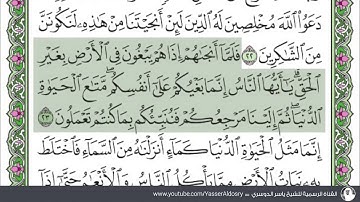 دَعَوُا۟ ٱللَّهَ مُخْلِصِينَ لَهُ ٱلدِّينَ لَئِنْ أَنجَيْتَنَا مِنْ هَٰذِهِۦ لَنَكُونَنَّ
مِنَ ٱلشَّٰكِرِينَ ٢٢ فَلَمَّآ أَنجَىٰهُمْ إِذَا هُمْ يَبْغُونَ فِى ٱلْأَرْضِ بِغَيْرِ
ٱلْحَقِّ يَٰٓأَيُّهَا ٱلنَّاسُ إِنَّمَا بَغْيُكُمْ عَلَىٰٓ أَنفُسِكُم مَّتَٰعَ ٱلْحَيَوٰةِ
ٱلدُّنْيَا ثُمَّ إِلَيْنَا مَرْجِعُكُمْ فَنُنَبِّئُكُم بِمَا كُنتُمْ تَعْمَلُونَ ٢٣
إِنَّمَا مَثَلُ ٱلْحَيَوٰةِ ٱلدُّنْيَا كَمَآءٍ أَنزَلْنَٰهُ مِنَ ٱلسَّمَآءِ فَٱخْتَلَطَ
بِهِۦ نَبَاتُ ٱلْأَرْضِ مِمَّا يَأْكُلُ ٱلنَّاسُ وَٱلْأَنْعَٰمُ حَتَّىٰٓ إِذَآ
القناة الرسمية للشيخ ياسر الدوسري – www.youtube.com/YasserAldosry